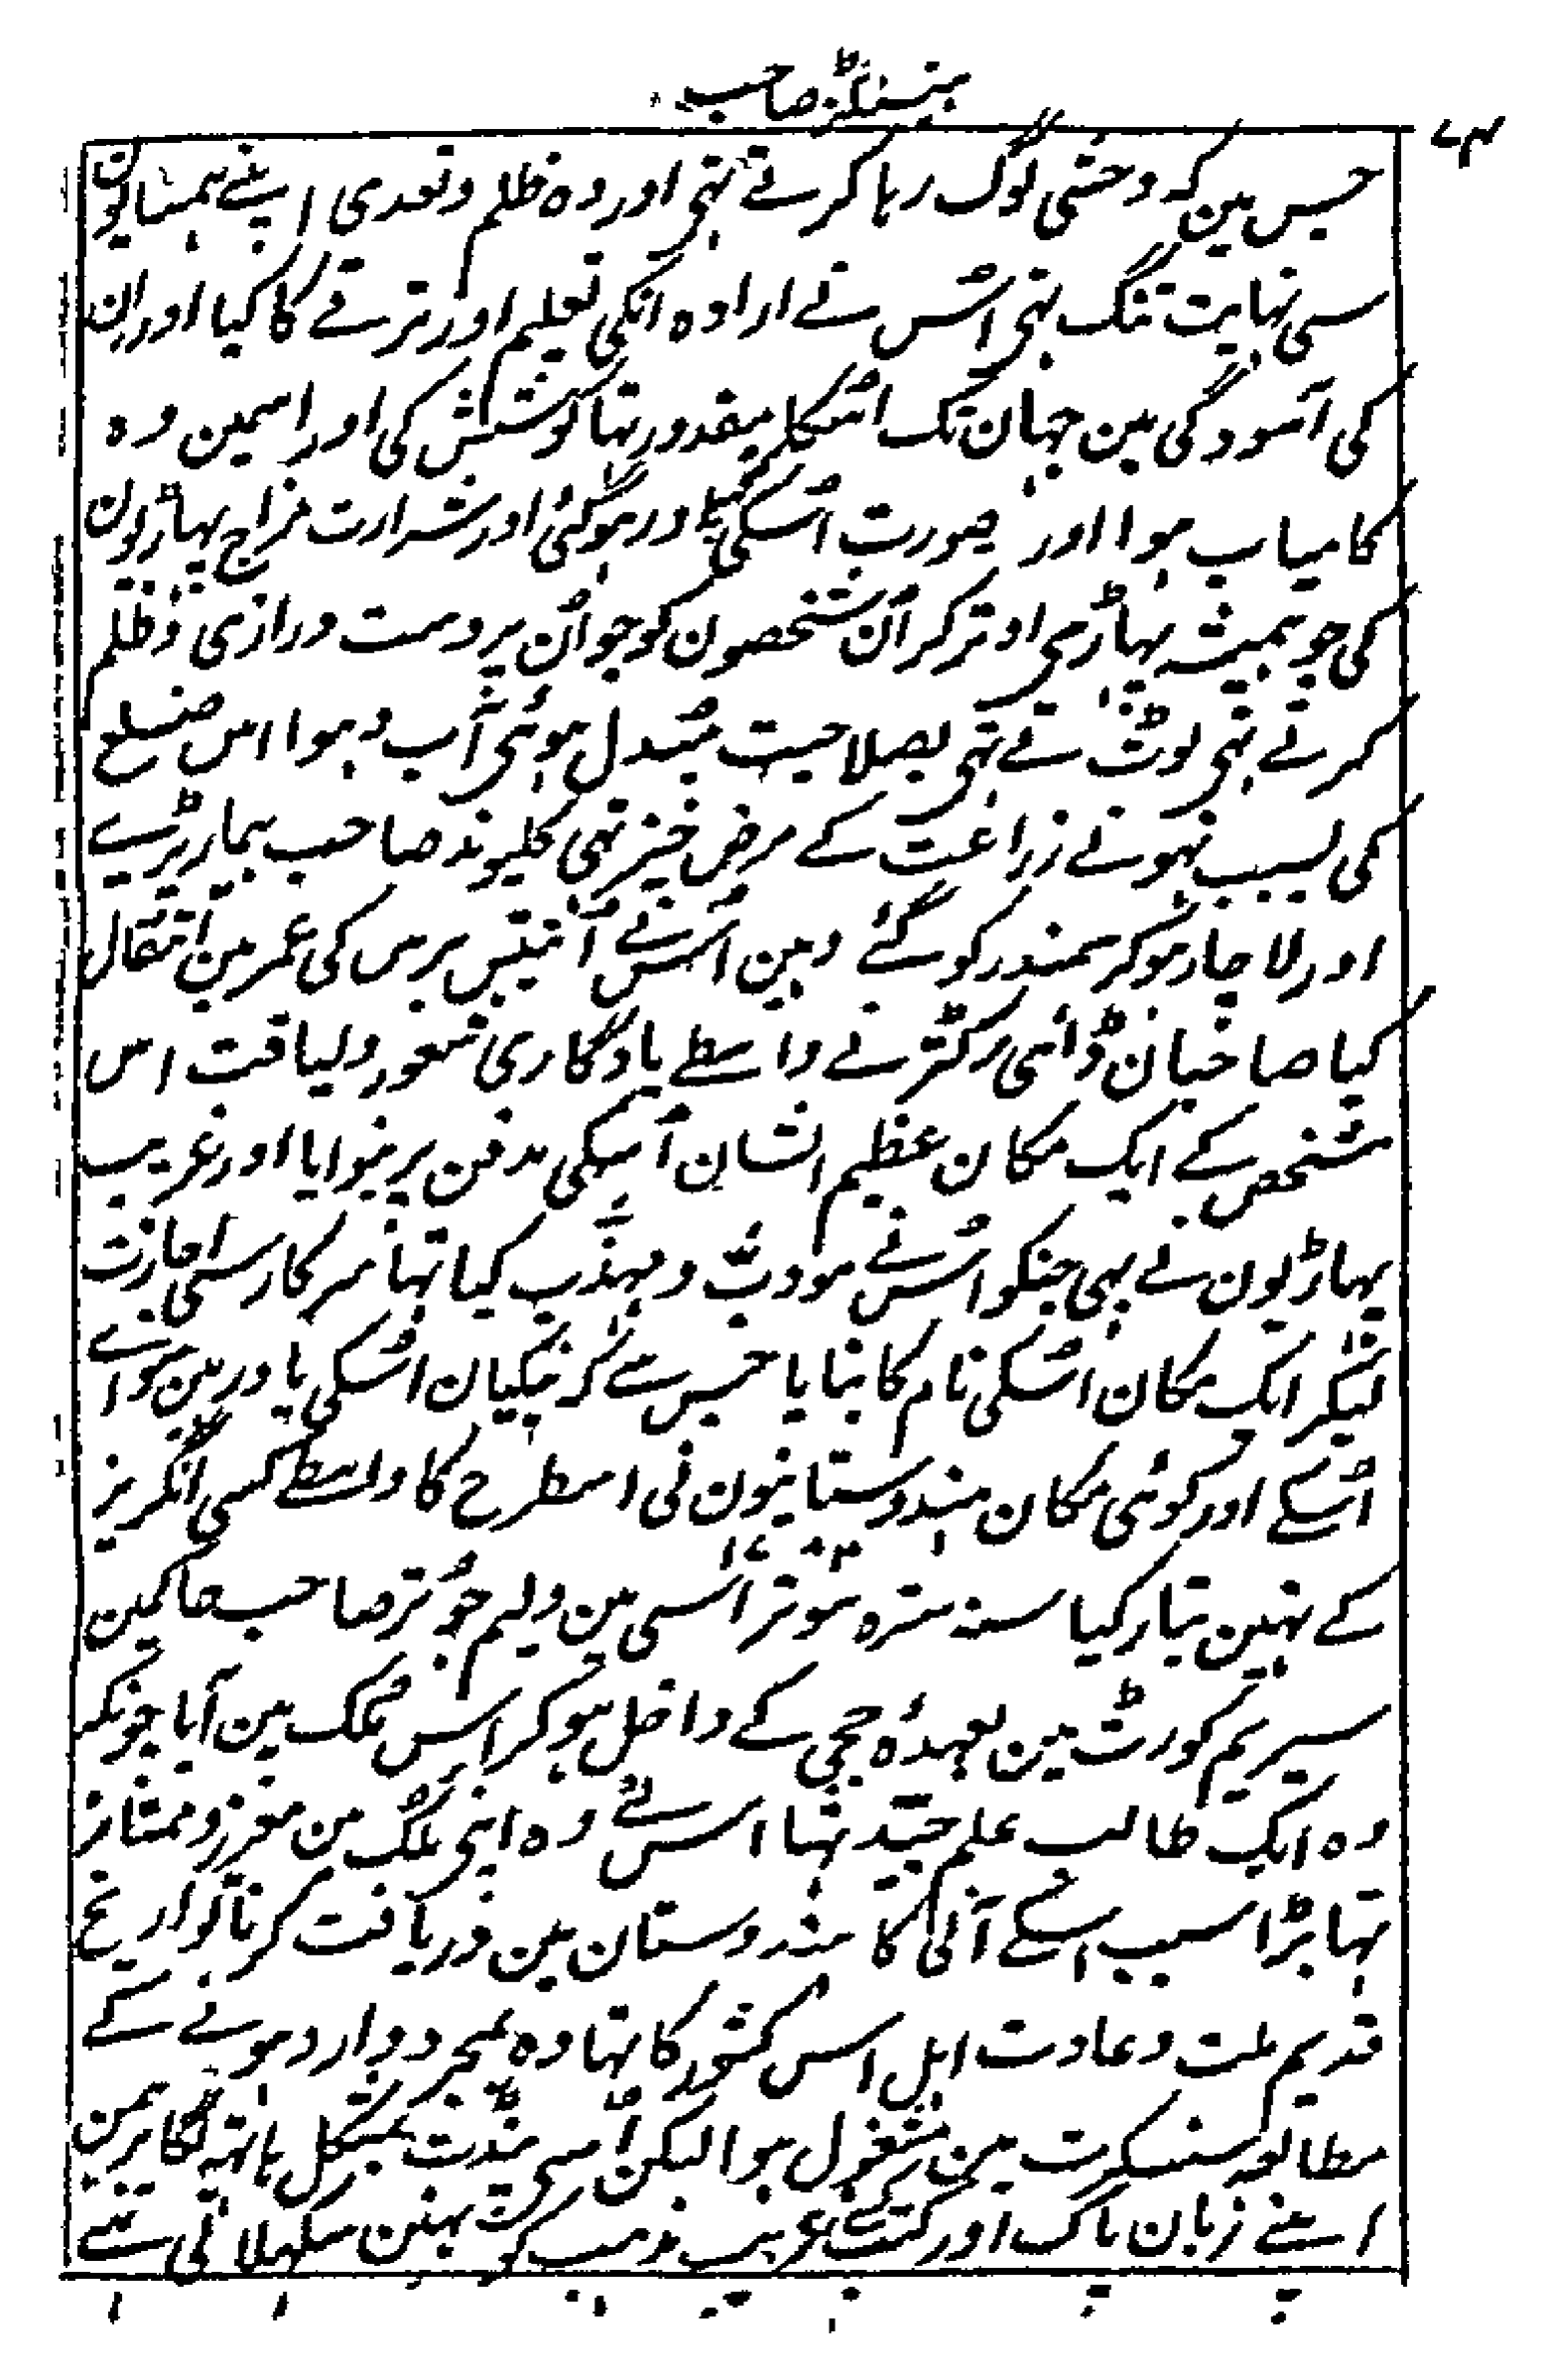 ہنسٹنگز صاحب
۷۴
جس مین کہ وحشی لوگ رہا کرتے تہی اور وہ ظلم و تعدی اپنے ہمسایون
سی نہایت تنگ تہی اُس نے ارادہ انکی تعلیم اور ترقے کا کیا اور ان
کی آسودگی مین جہان تک اُسکا مقدور تہا کوشش کی اور اسمین وہ
کامیاب ہوا اور صورت اُسکی اور ہوگئی اور شرارت مزاج پہاڑیون
کی جو ہمیشہ پہاڑ سی اوتر کر اُن شخصون کو جو اُن پر دست درازی و ظلم
کرتے تہی لوٹتے تہی بصلاحیت مبدل ہوئی آب و ہوا اس ضلع
کی بسبب نہونے زراعت کے مرض خیز تہی کلیوند صاحب بیمار پڑے
اور لاچار ہوکر سمندر کو گئے وہین اُسنے اُنتیس برس کی عمر مین انتقال
کیا صاحبان ڈائی رکٹر نے واسطے یادگاری شعور و لیاقت اس
شخص کے ایک مکان عظیم الشان اُسکی مدفن پر بنوایا اور غریب
پہاڑیون نے بہی جنکو اُسنے مودب و مہذب کیا تہا سرکار سی اجازت
لیکر ایک مکان اُسکی نام کا بنایا جس سے کہ نیکیان اُسکی یاد رہین سواے
اُسکے اور کوئی مکان ہندوستانیون نی اسطرح کا واسطے کسی انگریز
کے نہین تیار کیا سنہ سترہ سو تراسی ۱۷۸۳ مین ولیم جونز صاحب حاکمین
سپریم کورٹ مین بعہدہ ججی کے داخل ہوکر اس ملک مین آیا چونکہ
وہ ایک طالب علم جید تہا اس لئے وہ اپنی ملک مین معزز و ممتاز
تہا بڑا سبب اسکے آنی کا ہندوستان مین دریافت کرنا تواریخ
قدیم ملت و عادت اہل اس کشور کا تہا وہ بمجرد وارد ہونے کے
مطالعہ سنسکرت مین مشغول ہوا لیکن اُسی پنڈت بمشکل ہاتہہ لگا برہمن
اپنے زبان پاک اور کتب غریب مذہب کو نہین سکہلاتی تہے